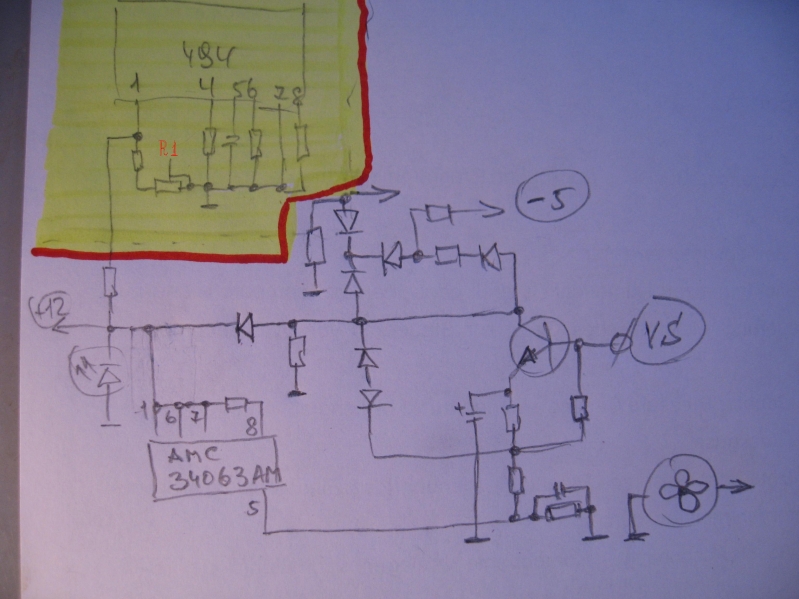 494
1 4 5 6 7 8
R1
-5
+12
VS
1 6 7 8
AMC
34063AM
5